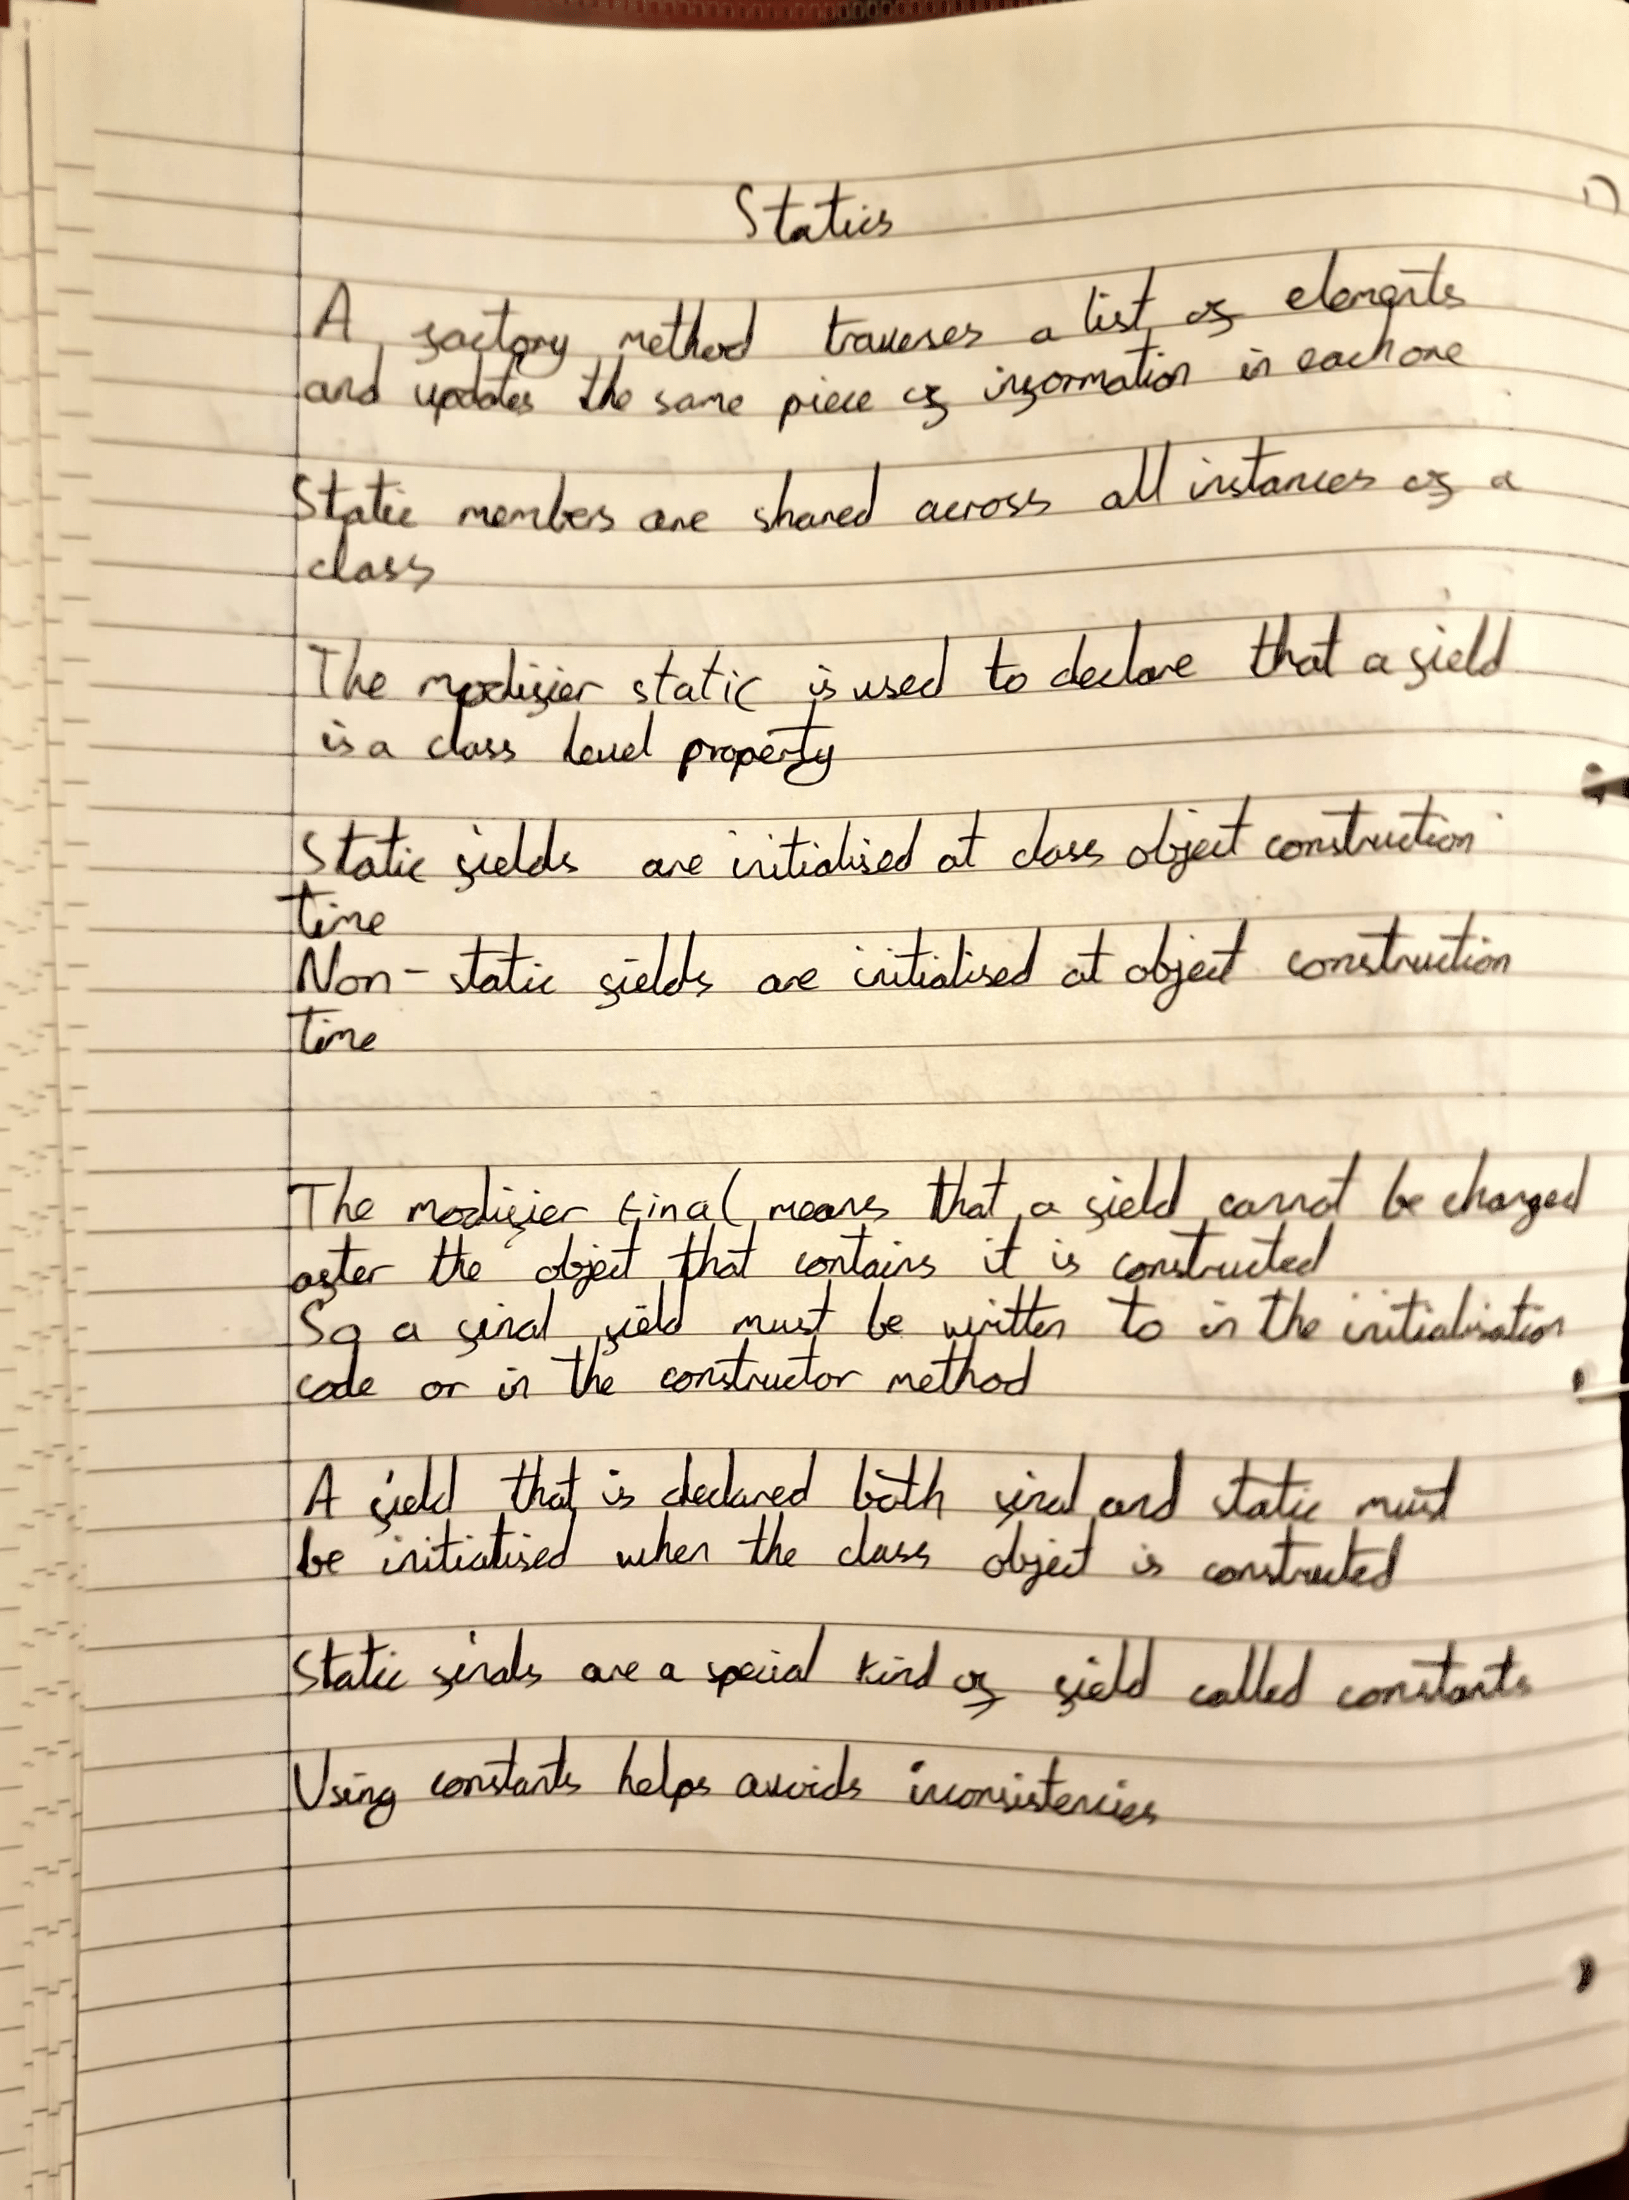 Statics
A factory method traverses a list of elements
and updates the same piece of information in each one
Static members are shared across all instances of a
class
The modifier static is used to declare that a field
is a class level property
Static fields are initialised at class object construction
time
Non-static fields are initialised at object construction
time
The modifier final means that a field cannot be changed
after the object that contains it is constructed
So a final field must be written to in the initialisation
code or in the constructor method
A field that is declared both final and static must
be initialised when the class object is constructed
Static finals are a special kind of field called constants
Using constants helps avoids inconsistencies